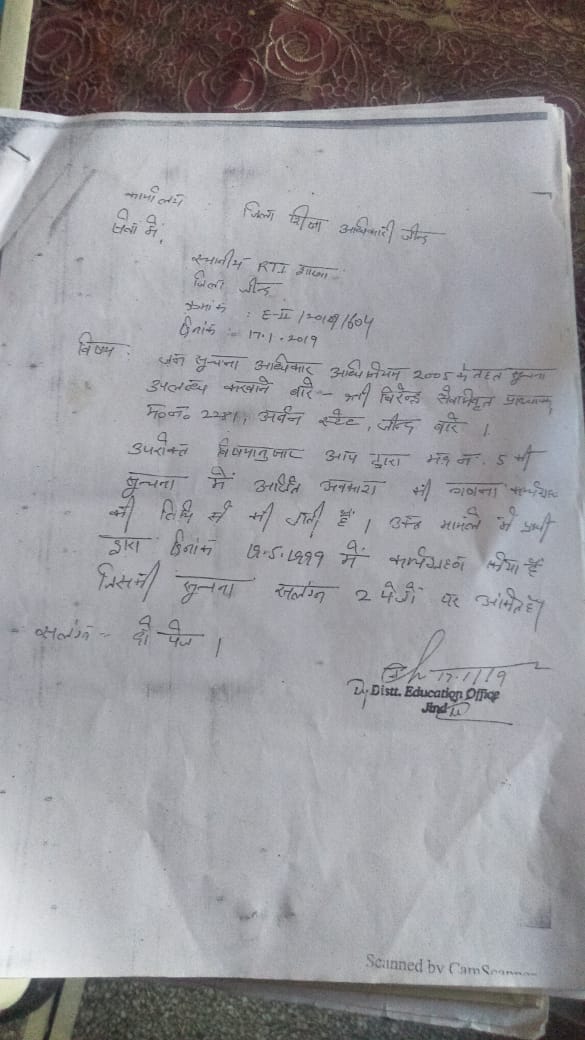 कार्यालय जिला शिक्षा अधिकारी जीन्द
सेवा में,
स्थानीय RTI शाखा
जिला जीन्द
क्रमांक : E-II /2019/604
दिनांक :- 17.1.2019
विषय :- जन सूचना अधिकार अधिनियम 2005 के तहत सूचना
उपलब्ध करवाने बारे - श्री विरेन्द्र सेवानिवृत प्राध्यापक,
म०न० 2281, अर्बन स्टेट, जीन्द बारे ।
उपरोक्त विषयानुसार आप द्वारा मद न. 5 की
सूचना में अर्जित अवकाश की गणना कार्यग्रहण
की तिथि से की जाती हैं । उक्त मामले में प्रार्थी
द्वारा दिनांक 19.5.1999 में कार्यग्रहण किया हैं
जिसकी सूचना सलंग्न 2 पेजों पर
सलंग्न :- दो पेज ।
17/1/19
Dy. Distt. Education Office
Jind
Scanned by CamScanner